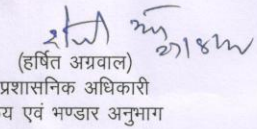 (हर्षित अग्रवाल)
प्रशासनिक अधिकारी
य एवं भण्डार अनुभाग